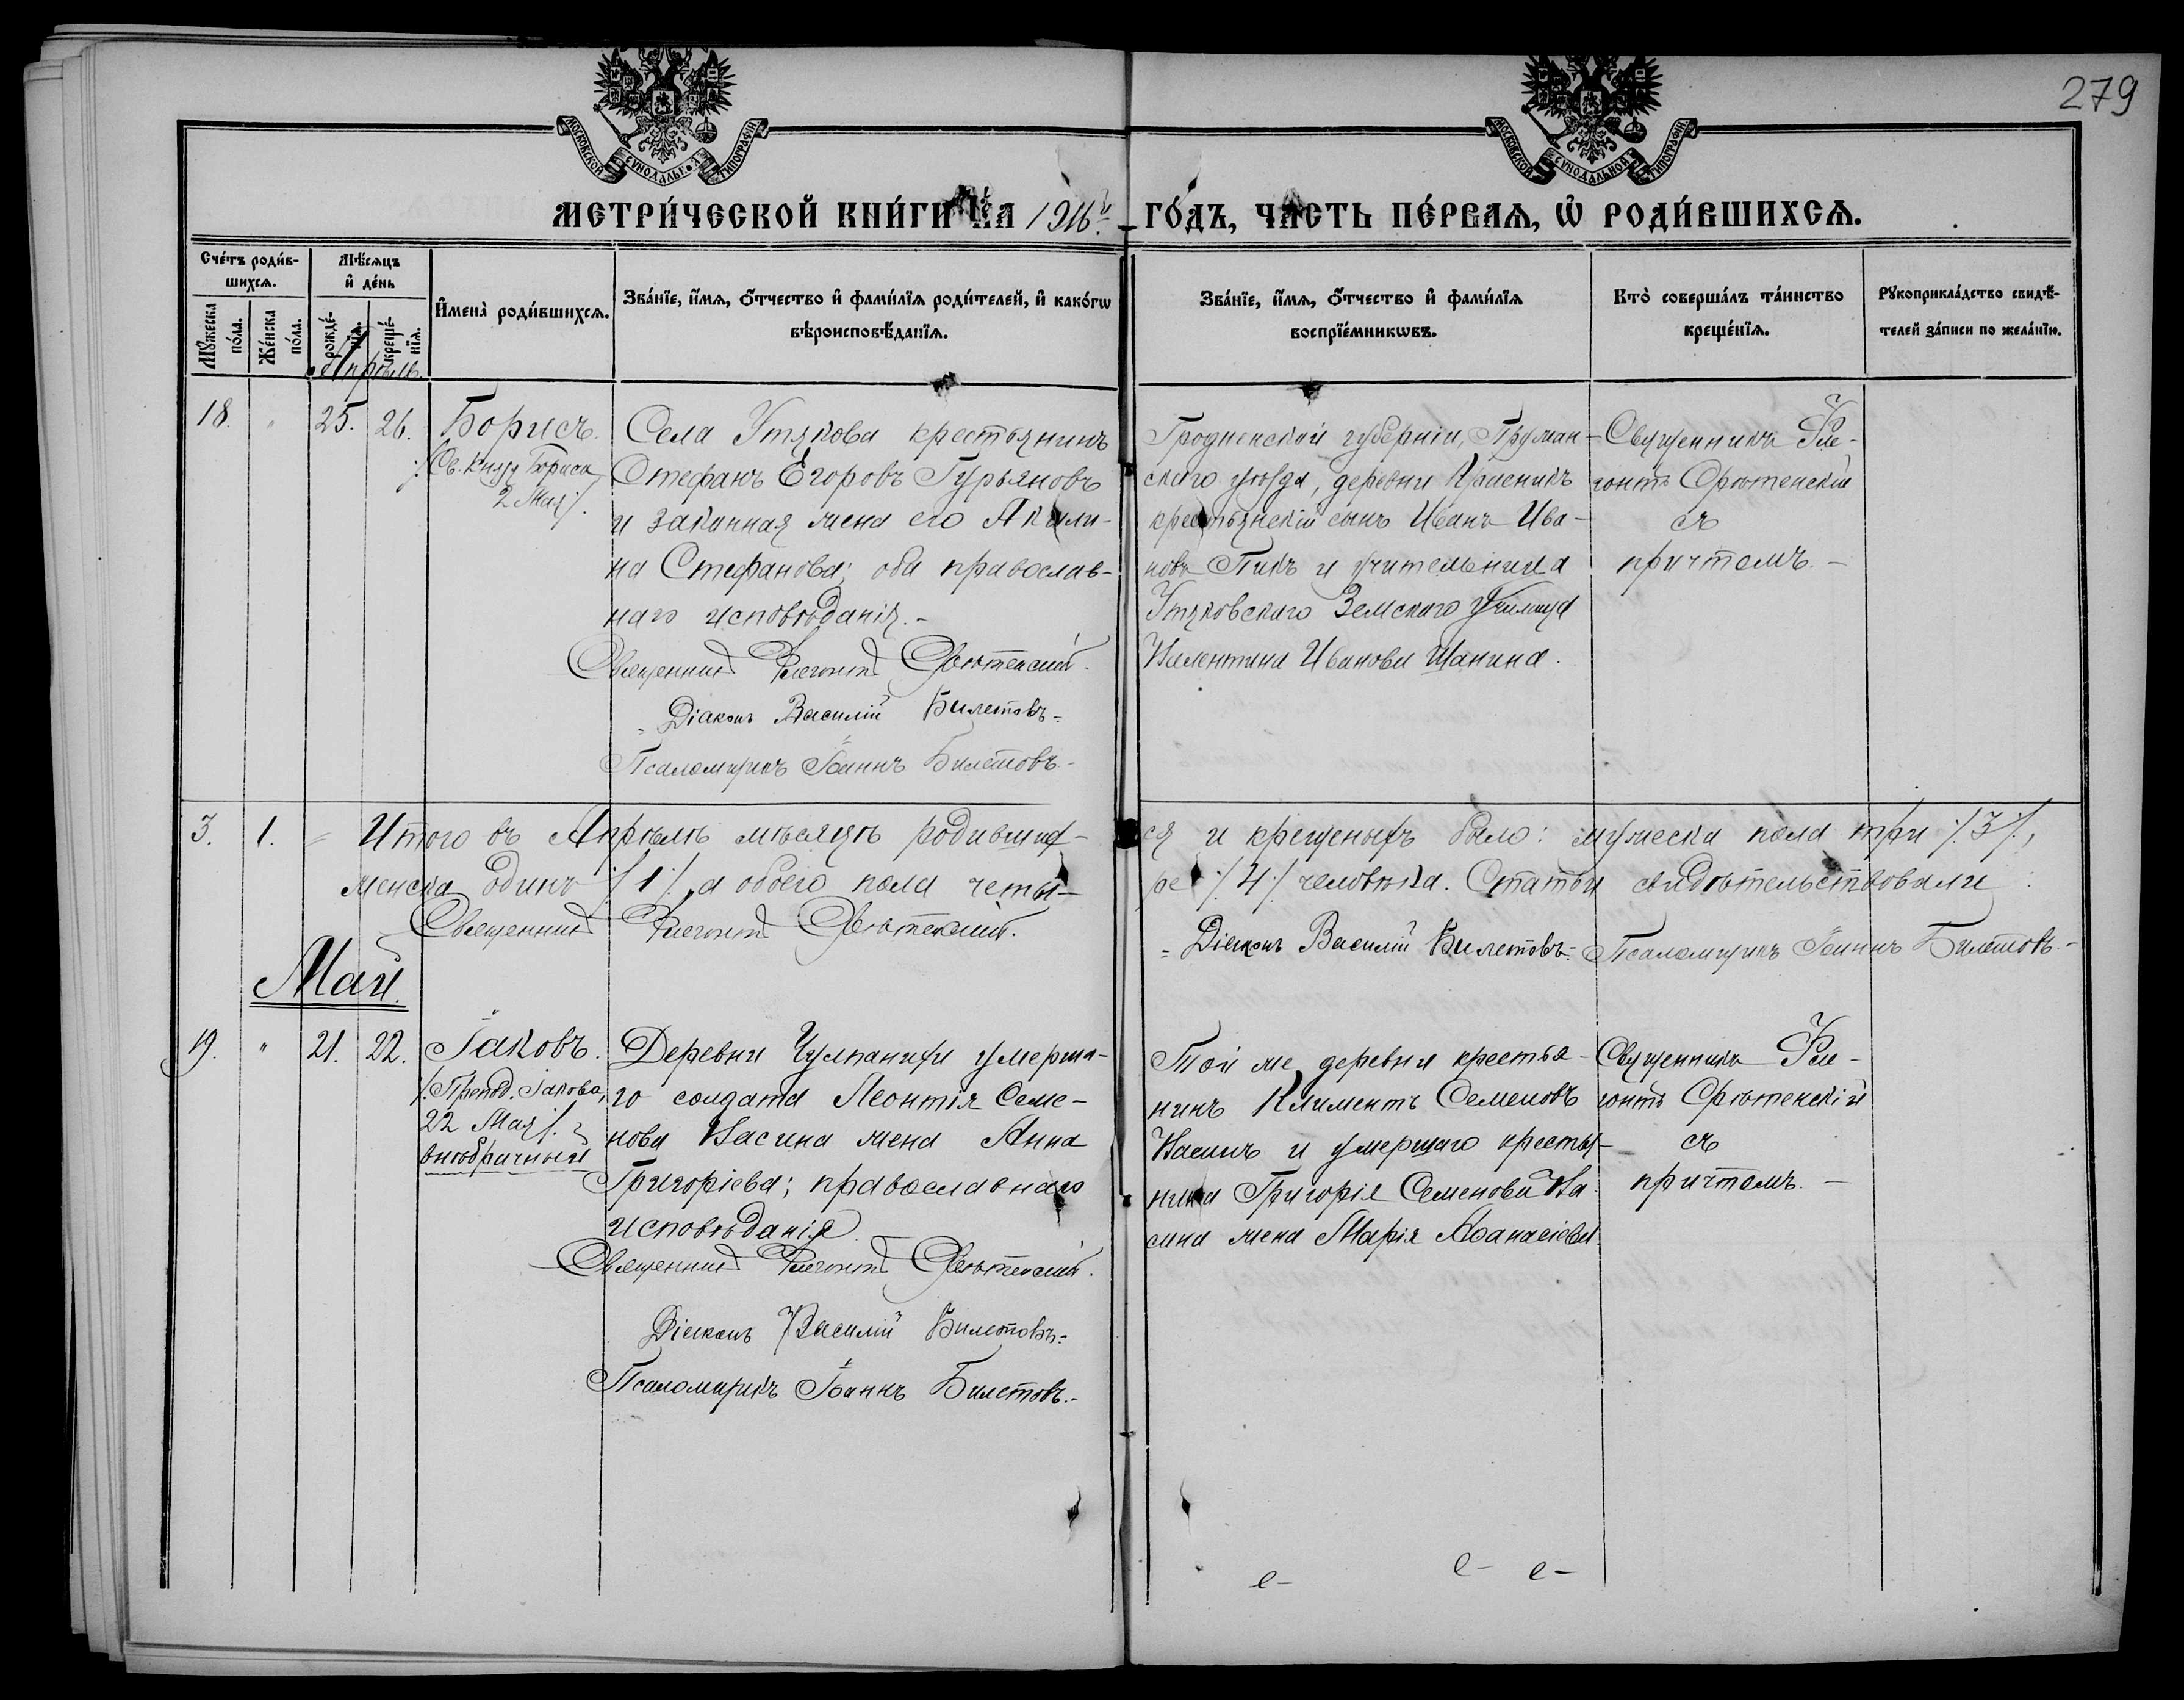 279
МОСКОВСКОЙ СѴНОДАЛЬНОЙ ТИПОГРАФІИ.
МОСКОВСКОЙ СѴНОДАЛЬНОЙ ТИПОГРАФІИ.
МЕТРИ́ЧЕСКОЙ КНИ́ГИ НА 1916й ГО́ДЪ, ЧА́СТЬ ПЕ́РВАѦ, Ѽ РОДИ́ВШИХСѦ.
Сче́тъ роди́в-
шихсѧ.
Мѣ́сѧцъ
и҆ де́нь
Мꙋ́жеска
по́ла.
Же́нска
по́ла.
рожде́-
нїѧ.
креще́-
нїѧ.
И҆мена̀ роди́вшихсѧ.
Зва́нїе, и҆́мѧ, ѻ҆́тчество и҆ фами́лїѧ роди́телей, и҆ како́гѡ
вѣроисповѣ́данїѧ.
Зва́нїе, и҆́мѧ, ѻ҆́тчество и҆ фами́лїѧ
воспрїе́мникѡвъ.
Кто̀ соверша́лъ та́инство
креще́нїѧ.
Рꙋкоприкла́дство свидѣ́-
телей за́писи по жела́нїю.
Апрѣль.
18. " 25. 26. Борисъ.
/Св. Князя Бориса
2 Мая/.
Села Утякова крестьянинъ
Стефанъ Егоровъ Гурьяновъ
и законная жена его Акили-
на Стефанова; оба православ-
наго исповѣданія.-
Священникъ Флегонтъ Срѣтенскій.
Діаконъ Василій Билетовъ.
Псаломщикъ Іоаннъ Билетовъ.-
Гродненской губерніи, Пружан-
скаго уѣзда, деревни
крестьянскій сынъ Иванъ Ива-
новъ Пикъ и учительница
Утяковскаго Земскаго училища
Валентина Иванова Шанина.
Священникъ Фле-
гонтъ Срѣтенскій
съ
причтомъ.-
3. 1. Итого въ Апрѣлѣ мѣсяцѣ родивших-
ся и крещеныхъ было: мужеска пола три /3/,
женска одинъ /1/, а обоего пола четы-
ре /4/ человѣка. Статьи свидѣтельствовали:
Священникъ Флегонтъ Срѣтенскій.
Діаконъ Василій Билетовъ. Псаломщикъ Іоаннъ Билетовъ.-
Май.
19. " 21. 22. Іаковъ.
/Препод. Іакова,
22 Мая/.
внѣбрачный
Деревни Чулпанихи умерша-
го солдата Леонтія Семе-
нова Васина жена Анна
Григоріева; православнаго
исповѣданія.
Священникъ Флегонтъ Срѣтенскій.
Діаконъ Василій Билетовъ.
Псаломщикъ Іоаннъ Билетовъ.-
Той же деревни крестья-
нинъ Климентъ Семеновъ
Васинъ и умершаго крестья-
нина Григорія Семенова Ва-
сина жена Марія Аѳанасіева.
Священникъ Фле-
гонтъ Срѣтенскій
съ
причтомъ.-